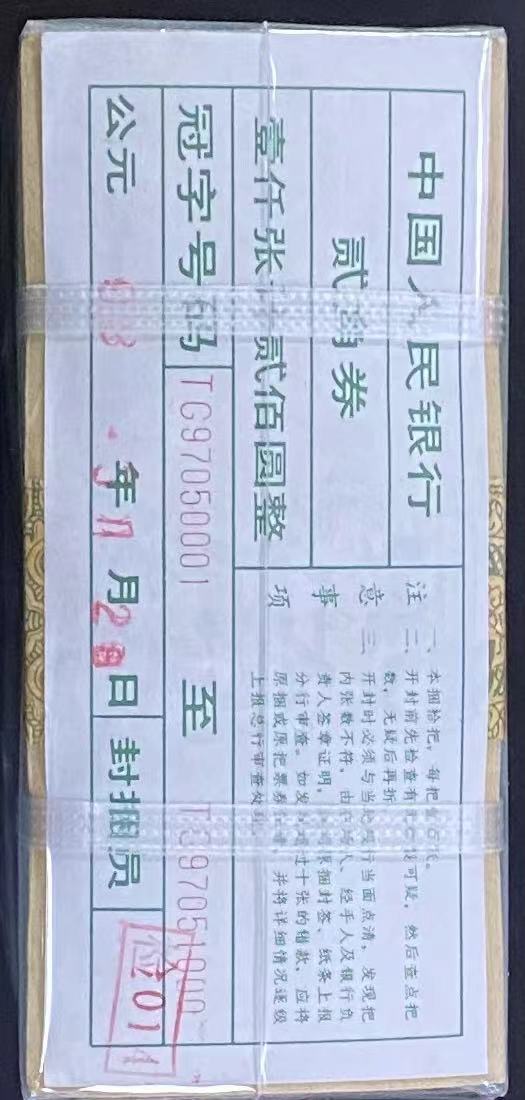 中国人民银行
贰角券
壹仟张 贰佰圆整
冠字号码 TG97050001 至
公元 年 11 月 2 日 封捆员
注意事项
一、本捆拾把，每把壹百张。
二、开封前先检查有 可疑，然后查点把
数，无疑后再拆
三、开封时必须与当 当面点清，发现把
内张数不符，由 人、经手人及银行负
责人签章证明， 原捆封签、纸条上报
分行审查。如发 过十张的错款，应将
原捆或原把票券 并将详细情况逐级
上报总行审查处理